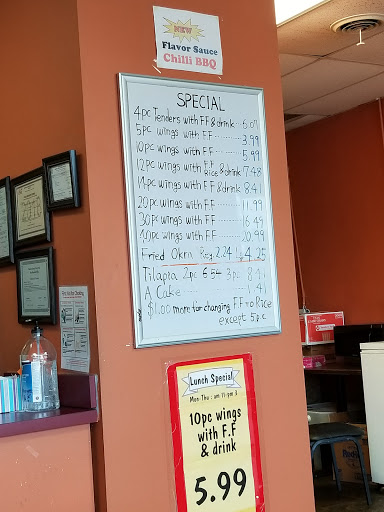 NEW
Flavor Sauce
Chilli BBQ
SPECIAL
4pc Tenders with F F & drink 6.07
5pc wings with F.F 3.99
10pc wings with F.F 5.99
12pc wings with F.F Rice & drink 7.48
14pc wings with F.F & drink 8.41
20pc wings with F.F 11.99
30pc wings with F.F 16.49
with F.F 20.99
Fried Okra Reg. 2.24 L 4.25
Tilapia 2pc 6.54 3pc 8.41
A Cake 1.41
$1.00 more for changing F.F to Rice
except 5pc
Lunch Special
Mon Thu : am 11-pm 3
10pc wings
with F.F
& drink
5.99